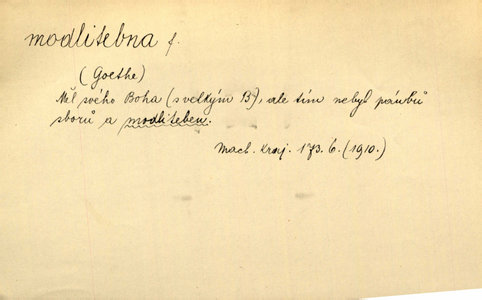 modlitebna f.
(Goethe)
Měl svého Boha (s velkým B), ale tím nebyl pánbů
sborů a modliteben.
Mach. Kraj. 173. 6. (1910.)